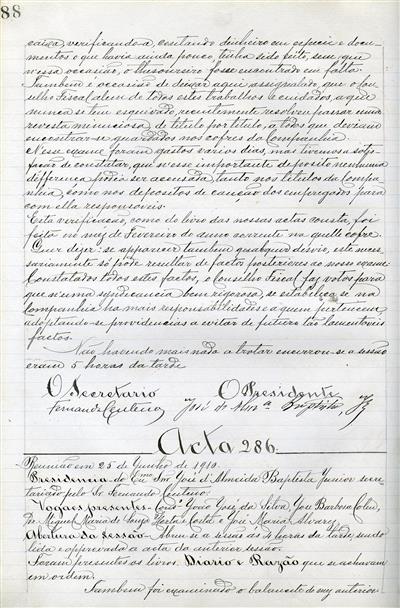 88
caixa, verificando-a, contando dinheiro em especie e docu-
mentos o que havia ainda pouco tinha sido feito, sem que
n'essa occasião, o thesoureiro fosse encontrado em falta.
Tambem é occasião de deixar aqui assignalado, que o Con-
selho Fiscal alem de todos estes trabalhos e cuidados, a que
nunca se tem esquivado, recentemente resolveu passar uma
revista minuciosa, de titulo por titulo, a todos que deviam
encontrar-se guardados nos cofres da Companhia.
N'esse exame foram gastos varios dias, mas tivemos a satis-
fação de constatar, que n'esse importante deposito nenhuma
differença podia ser accusada, tanto nos titulos da Compa-
nhia, como nos depositos de caução dos empregados para
com ella responsaveis.
Esta verificação, como do livro das nossas actas consta, foi
feita no mez de Fevereiro do anno corrente
Quer dizer: se apparecer tambem qualquer desvio, este neces-
sariamente só póde resultar de factos posteriores ao nosso exame.
Constatados todos estes factos, o Conselho Fiscal faz votos para
que n'uma syndicancia bem rigorosa, se estabeleça se na
Companhia ha mais responsabilidades e a quem pertencem,
adoptando-se providencias a evitar de futuro tão lamentaveis
factos.
Não havendo mais nada a tratar encerrou-se a sessão
eram 5 horas da tarde.
O Secretario O Presidente
Fernando Centeno José de Alm.da Baptista Jr
Acta 286.
Reunião em 25 de Junho de 1910.
Presidencia do Exmo Snr José d'Almeida Baptista Junior secre-
tariado pelo Sr Fernando Centeno.
Vogaes presentes - José da Silva, José Barbosa Colen,
Dr. Miguel Maria de Horta e Costa e José Maria Alvarez.
Abertura da sessão - Abriu-se a sessão ás 4 horas da tarde, sendo
lida e approvada a acta da anterior sessão.
Foram presentes os livros Diario e Razão que se achavam
em ordem.
Tambem foi examinado o balancete do mez anterior